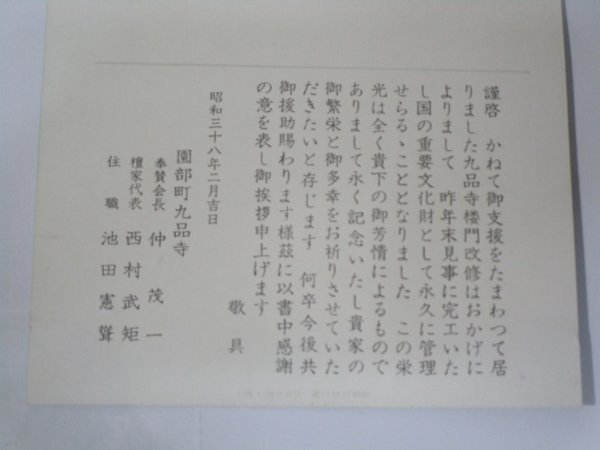 謹啓　かねて御支援をたまわつて居
りました九品寺楼門改修はおかげに
よりまして　昨年末見事に完工いた
し国の重要文化財として永久に管理
せらるゝこととなりました　この栄
光は全く貴下の御芳情によるもので
ありまして永く記念いたし貴家の
御繁栄と御多幸をお祈りさせていた
だきたいと存じます　何卒今後共
御援助賜わります様茲に以書中感謝
の意を表し御挨拶申上げます
敬具
昭和三十八年二月吉日
園部町九品寺
奉賛会長　仲茂一
檀家代表　西村武矩
住職　池田憲聳